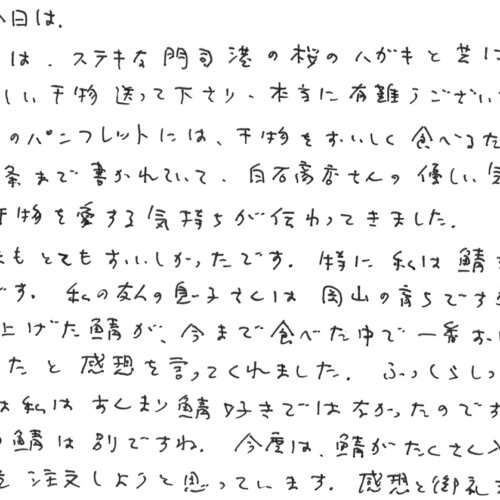 日は.
は、ステキな門司港の桜のハガキと共に
しい干物送って下さり、本当に有難うござい
のパンフレットには、干物をおいしく食べるた
条まで書かれていて、白石商店さんの優しい気
干物を愛する気持ちが伝わってきました.
もとてもおいしかったです. 特に私は鯖
です. 私の友人の息子さんは岡山の育ちです
上げた鯖が、今まで食べた中で一番お
たと感想を言ってくれました. ふっくらしっ
は私はあんまり鯖好きではなかったのです
の鯖は別ですね. 今度は、鯖がたくさん入
注文しようと思っています. 感想と御礼